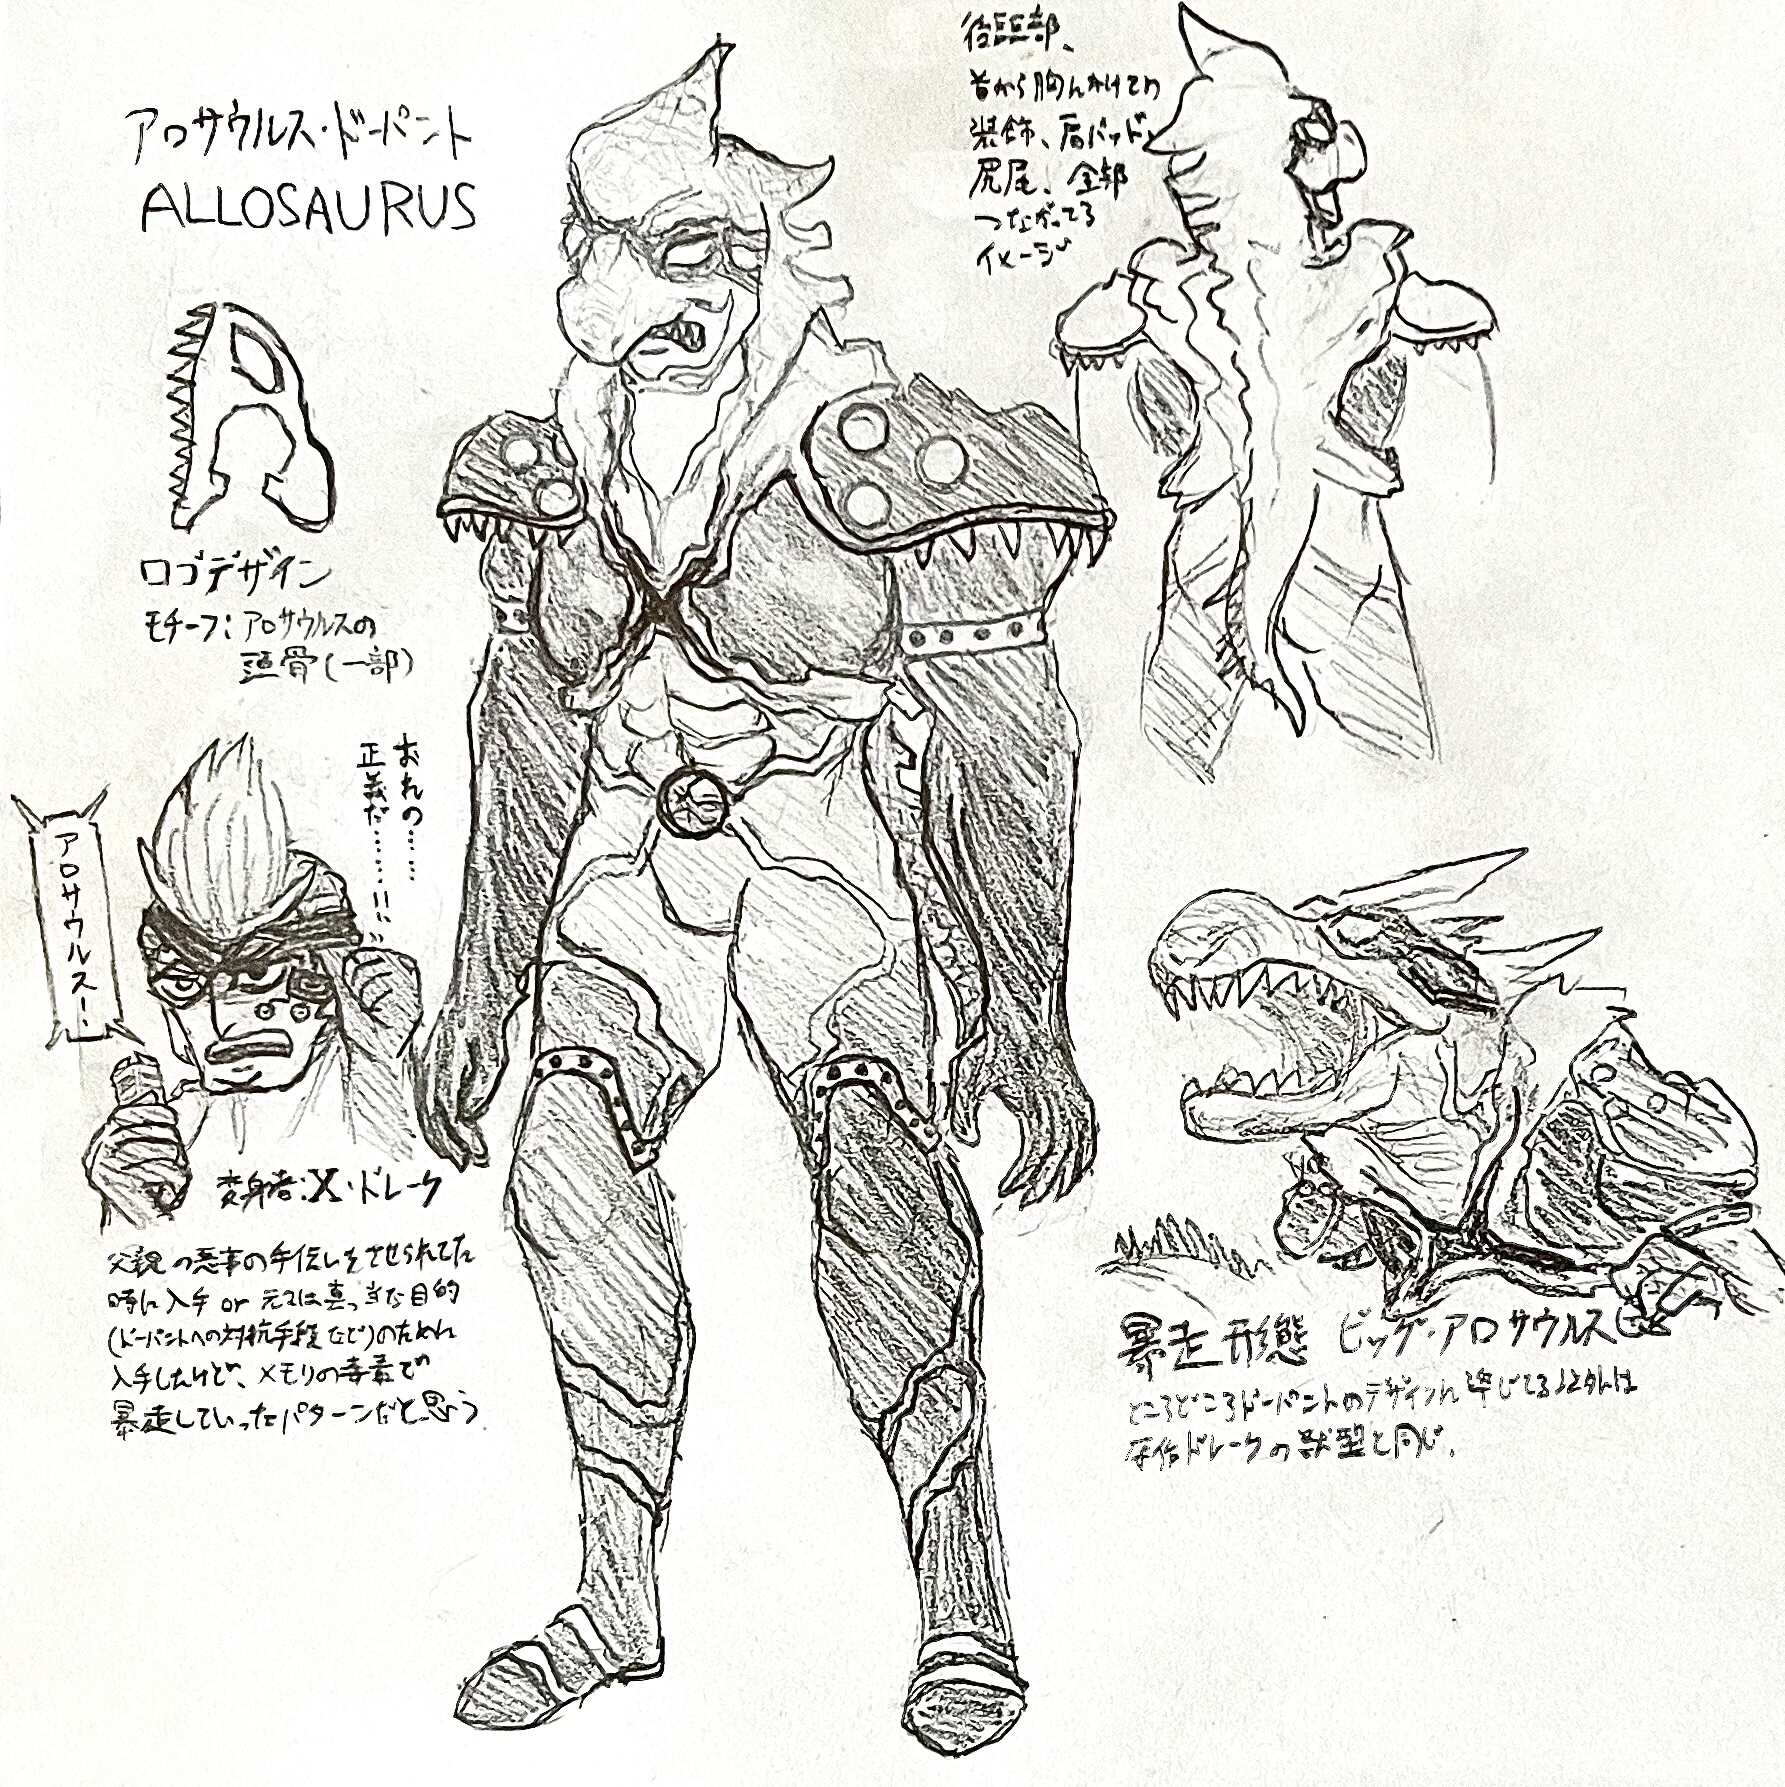 アロサウルス・ドーパント
ALLOSAURUS
ロゴデザイン
モチーフ：アロサウルスの
頭骨（一部）
アロサウルス！
おれの……
正義だ……!!
変身者：X・ドレーク
父親の悪事の手伝いをさせられてた
時に入手 or 元々は真っ当な目的
（ドーパントへの対抗手段など）のために
入手したけど、メモリの毒素で
暴走していったパターンだと思う
後頭部、
首から胸にかけての
装飾、肩パッド、
尻尾、全部
つながってる
イメージ
暴走形態 ビッグ・アロサウルス
ところどころドーパントのデザインに準じてる以外は
原作ドレークの獣型と同じ.